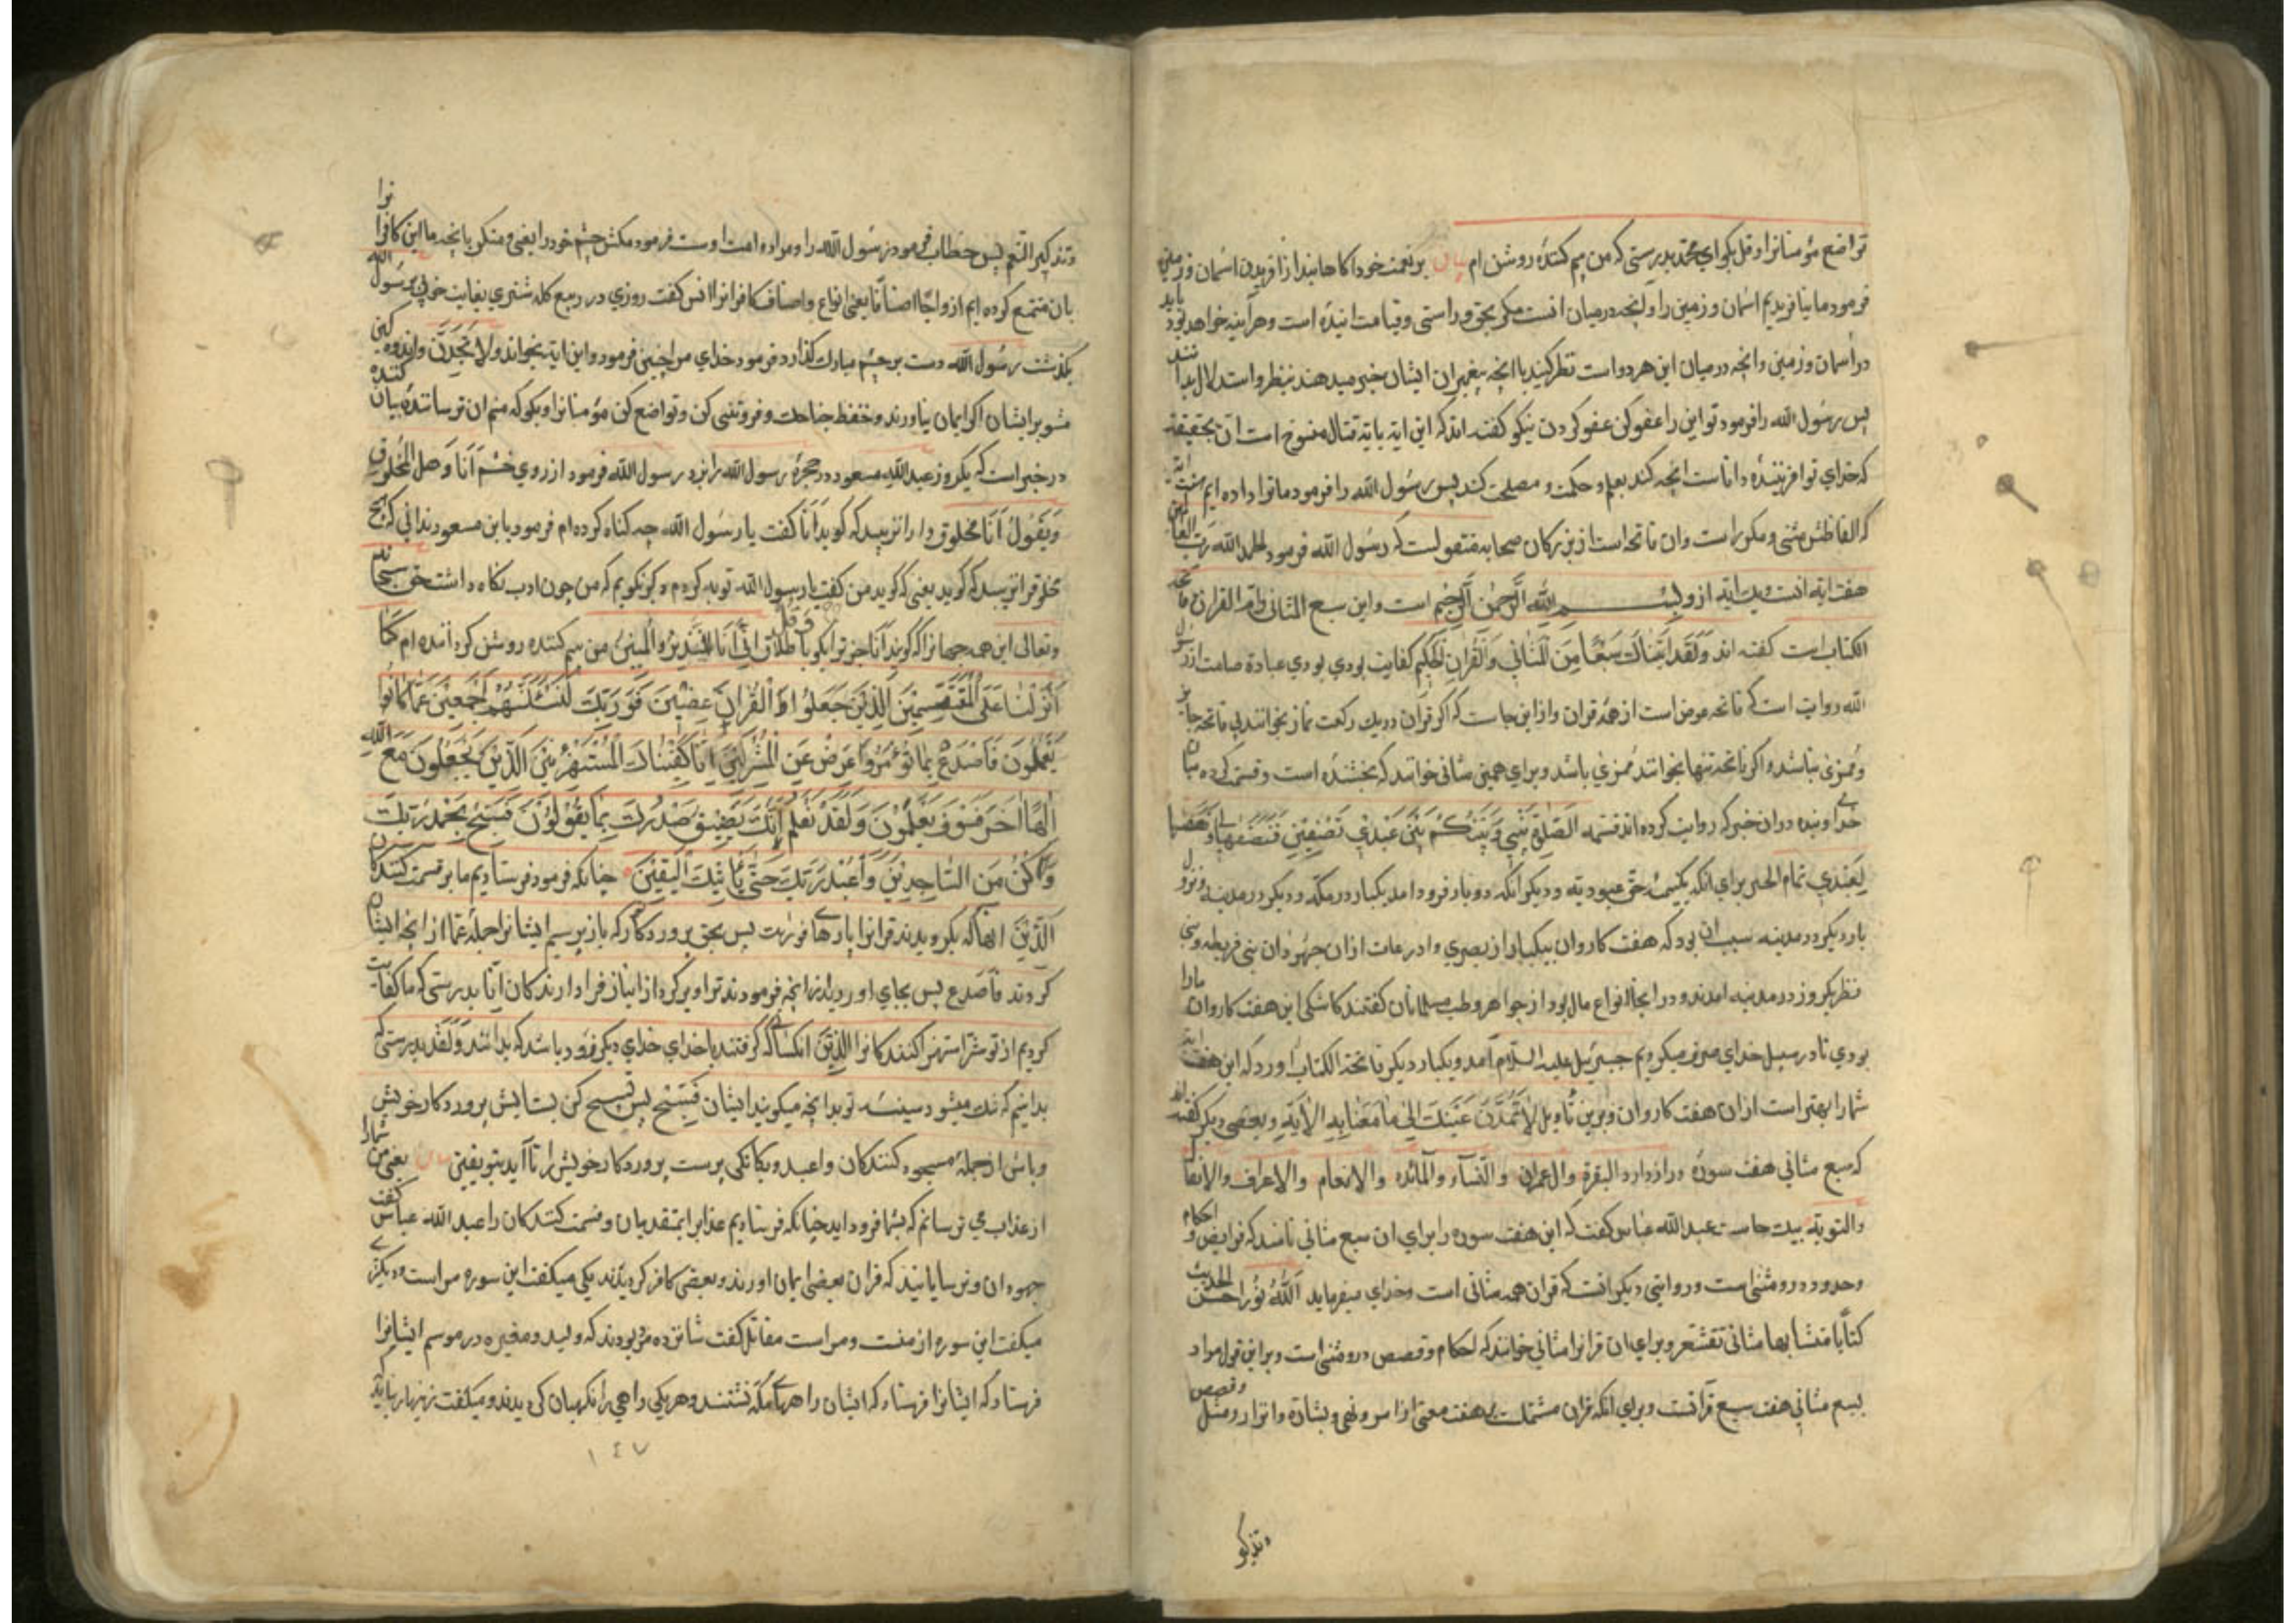 تواضع مؤمنانرا وقل بكو اي محمد بدرستی كه من بیم كننده روشن ام بیان بر نعمت خود اكاهانید از افریدن اسمان و زمین
فرمود ما نیافریدیم اسمان و زمین را و انچه در میان انست مكر بحق و راستی و قیامت اینده است و هر اینه خواهد بود باید
در اسمان و زمین و انچه در میان این هر دو است نظر كنید با انچه پیغمبران ایشان خبر میدهند بنظر و استدلال بدانند
پس رسول الله را فرمود تو این را عفو كن عفو كردن نیكو كفته اند كه این ایة بایة قتال منسوخ است ان بحقیقة
كه خدای تو افریننده داناست انچه كند بعلم و حكمت و مصلحت كند پس رسول الله را فرمود ما ترا داده ایم هفت ایة
كه الفاظش مثنی و مكرر است و ان فاتحه است از بزركان صحابه منقولست كه رسول الله فرمود الحمد لله رب العالمین
هفت ایة است و یك ایة از و بسم الله الرحمن الرحیم است و این سبع المثانی و ام القران و فاتحه
الكتاب است كفته اند ولقد اتیناك سبعا من المثانی والقران الحكیم كفایت بودی بودی عبادة صامت از رسول
الله روایت است كه فاتحه عوض است از همه قران و از این جاست كه اكر قران در یك ركعت نماز بخوانند بی فاتحه جایز
و مجزی نباشد و اكر فاتحه تنها بخوانند مجزی باشد و برای همین مثانی خوانند كه بخشنده است و قسمت كرده میان
خدا و بنده در ان خبر كه روایت كرده اند قسمت الصلوة بینی و بین عبدی نصفین فنصفها لی و نصفها
لعبدی تمام الخبر برای انكه یكنیمه حق عبودیة و دیكر انكه دو بار فرود امد یكبار در مكه و دیكر در مدینه و نزول
بار دیكر در مدینه سبب ان بود كه هفت كاروان بیكبار از بصری و اذرعات از ان جهودان بنی قریظه و بنی
نظیر یكروز در مدینه امدند و در انجا انواع مال بود از جواهر و طیب مسلمانان كفتند كاشكی این هفت كاروان مارا
بودی تا در سبیل خدای صرف میكردیم جبرئیل علیه السلام آمد و یكبار دیكر فاتحة الكتاب اورد كه این هفت ایة
شما را بهتر است از ان هفت كاروان و برین تأویل لا تمدن عینیك الی ما متعنا به الایة و بعضی دیكر كفته اند
كه سبع مثانی هفت سوره دراز دارد البقرة وال عمران والنساء والمائده والانعام والاعراف والانفال
والتوبة بیك جاست عبدالله عباس كفت كه این هفت سوره را برای ان سبع مثانی نامند كه فرایض و احكام
و حدود درو مثنی است و روایتی دیكر انست كه قران همه مثانی است و خدای میفرماید الله نزل احسن الحدیث
كتابا متشابها مثانی تقشعر و برای ان قرانرا مثانی خوانند كه احكام و قصص درو مثنی است و بر این قول مراد
بسبع مثانی هفت سبع قرآنست و برای انكه قران مشتملست بر هفت معنی از امر و نهی و بشارة و انذار و مثل و قصص
وتذكیر
وتذكیر النعم پس خطاب فرمود رسول الله را و مراد امت اوست فرمود مكش چشم خود را یعنی و منكر بانچه ما این كافرانرا
بان متمتع كرده ایم ازواجا اصنافا یعنی انواع و اصناف كافرانرا انس كفت روزی در ربیع كله شتری بغایت خوب برسول الله
بكذشت رسول الله دست بر چشم مبارك كذارد فرمود خدای مرا چنین فرمود و این ایة بخواند ولا تحزن و اندوهكین
مشو بر ایشان اكر ایمان نیاورند وخفض جناحك و فروتنی كن و تواضع كن مؤمنانرا و بكو كه منم ان ترساننده بیان كننده
در خبر است كه یكروز عبدالله مسعود در حجرهٔ رسول الله را بزد رسول الله فرمود از روی خشم انا و هل المخلوق
ویقول انا مخلوق را نرسد كه كوید انا كفت یا رسول الله چه كناه كرده ام فرمود یا ابن مسعود ندانی كه هیچ
مخلوقرا نرسد كه كوید یعنی كه كوید من كفت یا رسول الله توبه كردم دكر نكویم كه من چون ادب نكاه داشت حق سبحانه
وتعالی این همه جهانرا كه كویند انا جز ترا بكو باطلاق وقل انی انا النذیر والمبین من بیم كننده روشن كردانده ام كما
انزلنا علی المقتسمین الذین جعلوا القران عضین فوربك لنسئلنهم اجمعین عما كانوا
یعملون فاصدع بما تؤمر واعرض عن المشركین انا كفیناك المستهزئین الذین یجعلون مع الله
الها اخر فسوف یعلمون ولقد نعلم انك یضیق صدرك بما یقولون فسبح بحمد ربك
وكن من الساجدین واعبد ربك حتی یأتیك الیقین چنانكه فرمود فرستادیم ما بر قسمت كنندكان
الذین انها كه بكردیدند قرانرا پارها پس بحق پروردكار كه باز پرسیم ایشانرا جمله عما از انچه ایشان
كردند فاصدع پس بجای اور انچه فرمودند ترا و بركرد از انباز فرا دارندكان انا بدرستی كه ما كفایت
كردیم از تو شر استهزا كنندكانرا الذین انكسان كه كرفتند با خدای خدای دیكر زود باشد كه بدانند ولقد بدرستی كه
بدانیم كه تنك میشود سینه تو بدانچه میكویند ایشان فسبح پس تسبیح كن بستایش پروردكار خویش
و باش از جمله سجود كنندكان واعبد و بیكانكی پرست پروردكار خویش را تا آید بتو یقین بیان یعنی من شمارا
از عذاب می ترسانم كه بشما فرود اید چنانكه فرستادیم عذاب و قسمت كنندكان را عبدالله عباس كفت
جهودان و ترسایانند كه قران بعضی ایمان اورند و بعضی كافر كردیدند یكی میكفت این سوره مراست و دیكری
میكفت این سوره از منست و مراست مقاتل كفت شانزده مرد بودند كه ولید و مغیره در موسم ایشانرا
فرستاد كه ایشانرا فرستاد كه ایشان راههای مكه نشستند و هر یكی راهی را نكهبان كردیدند و میكفت زینهار
١٤٧